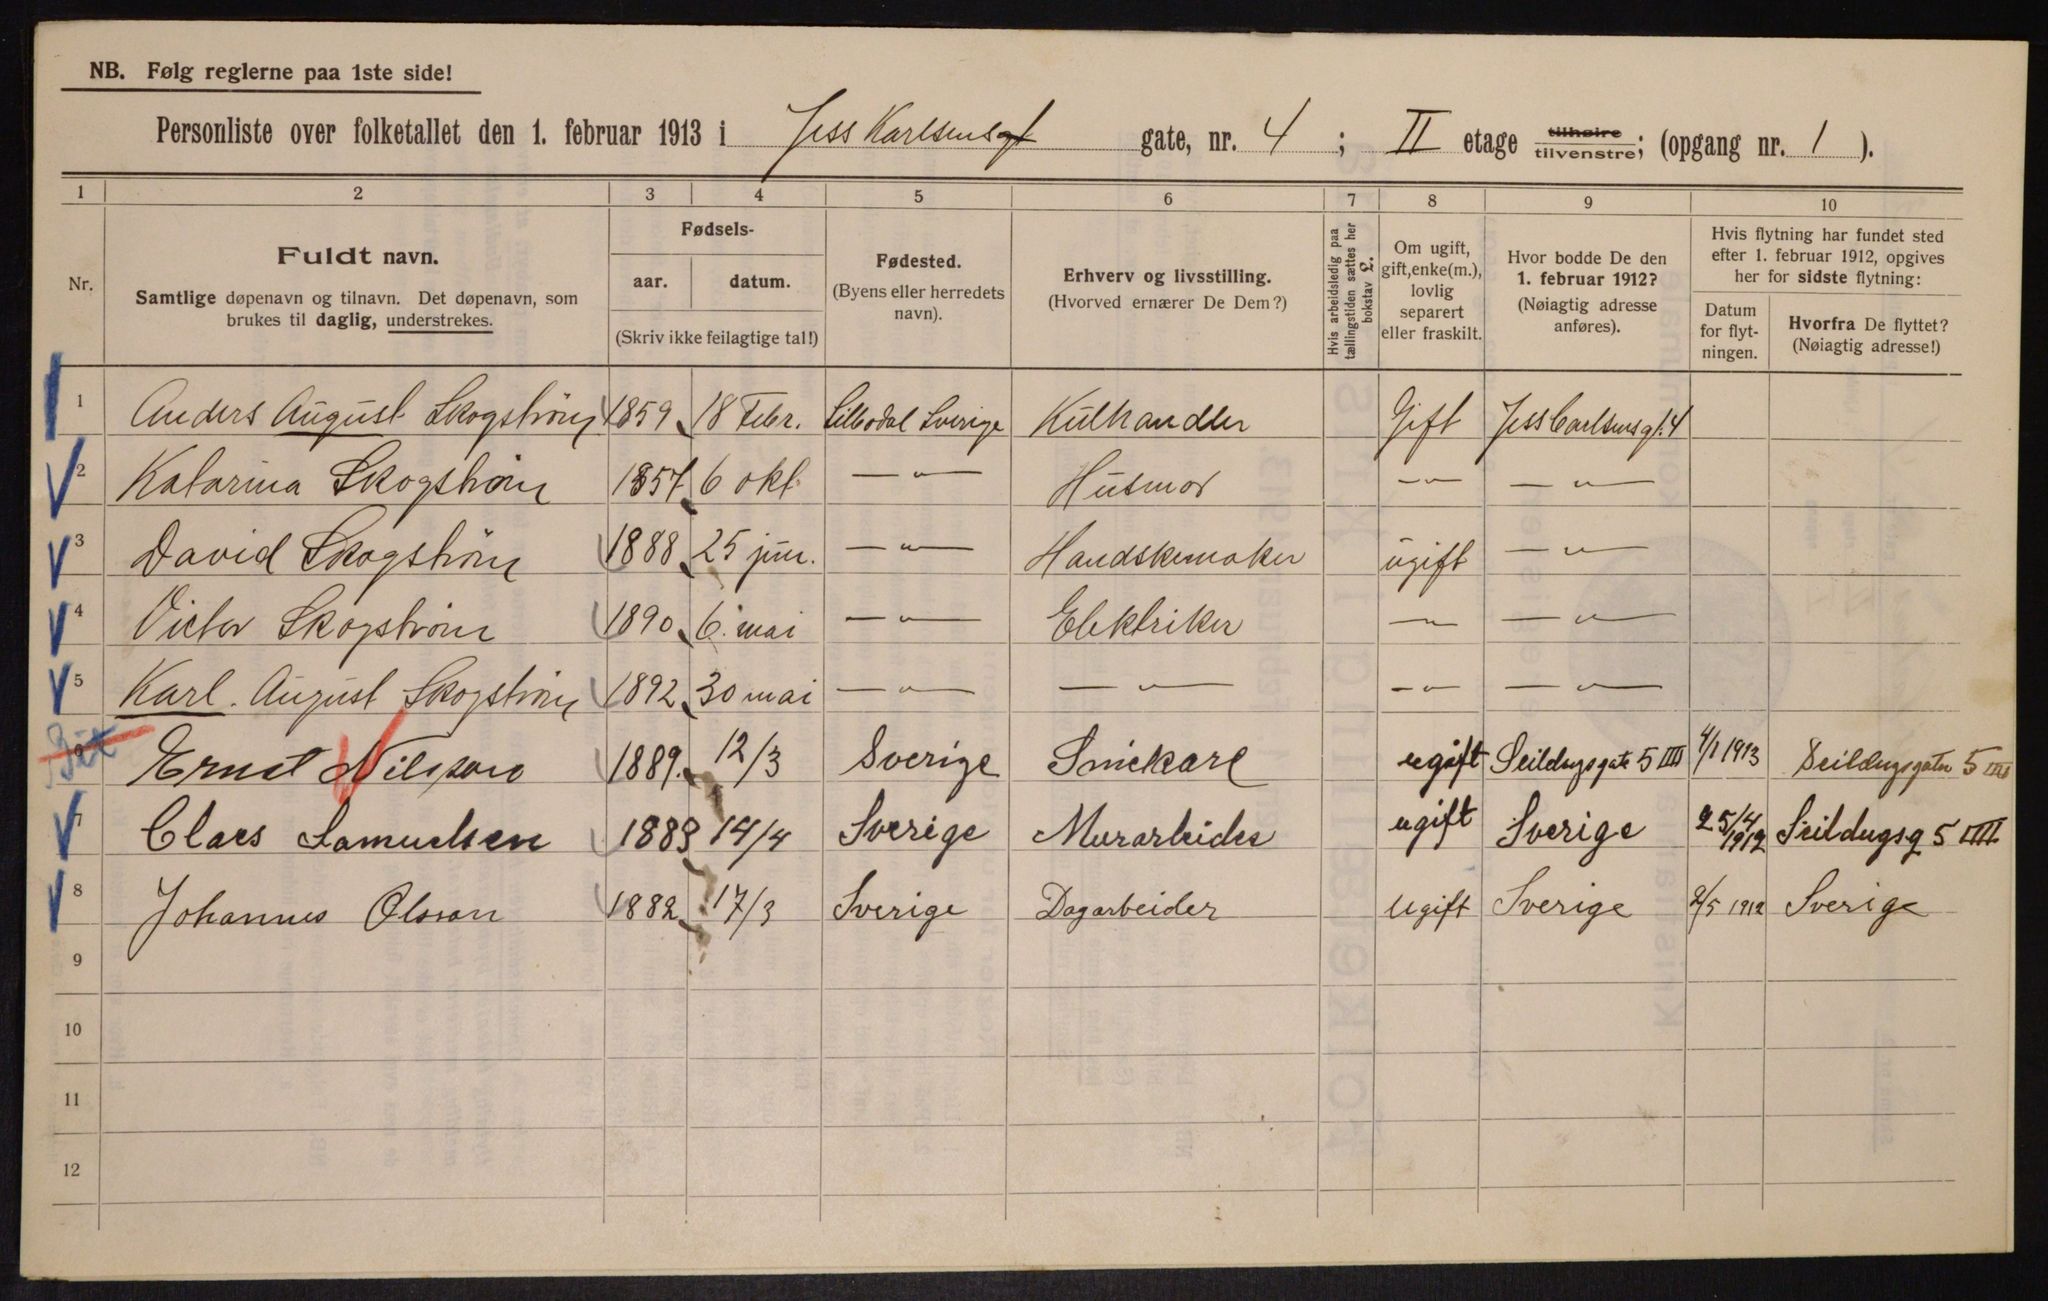 NB. Følg reglerne paa 1ste side!
Personliste over folketallet den 1. februar 1913 i Jess Karlsensgt gate, nr. 4 ; II etage tilhøire tilvenstre; (opgang nr. 1 ).
1 2 3 4 5 6 7 8 9 10
Nr.
Fuldt navn.
Samtlige døpenavn og tilnavn. Det døpenavn, som
brukes til daglig, understrekes.
Fødsels-
aar. datum.
(Skriv ikke feilagtige tal!)
Fødested.
(Byens eller herredets
navn).
Erhverv og livsstilling.
(Hvorved ernærer De Dem?)
Hvis arbeidsledig paa
tællingstiden sættes her
bokstav L.
Om ugift,
gift, enke(m.),
lovlig
separert
eller fraskilt.
Hvor bodde De den
1. februar 1912?
(Nøiagtig adresse
anføres).
Hvis flytning har fundet sted
efter 1. februar 1912, opgives
her for sidste flytning:
Datum
for flyt-
ningen.
Hvorfra De flyttet?
(Nøiagtig adresse!)
1 Anders August Skogström 1859 18 Febr. Silbodal Sverige Kulhandler Gift Jess Carlsensgt. 4
2 Katarina Skogström 1857 6 okt — " — Husmor — " — — " —
3 David Skogström 1888 25 jun. — " — Handskemaker ugift — " —
4 Victor Skogström 1890 6. mai — " — Elektriker — " — — " —
5 Karl. August Skogström 1892 30 mai — " — — " — — " — — " —
6 Ernst Nilsson 1889. 12/3 Sverige Snickare ugift Seildugsgate 5 IIII 4/1 1913 Seildugsgaten 5 IIII
7 Claes Samuelsen 1883 14/4 Sverige Murarbeider ugift Sverige 25/4 1912 Seildugsg 5 IIII
8 Johannes Olsson 1882 17/3 Sverige Dagarbeider Ugift Sverige 2/5 1912 Sverige
9
10
11
12